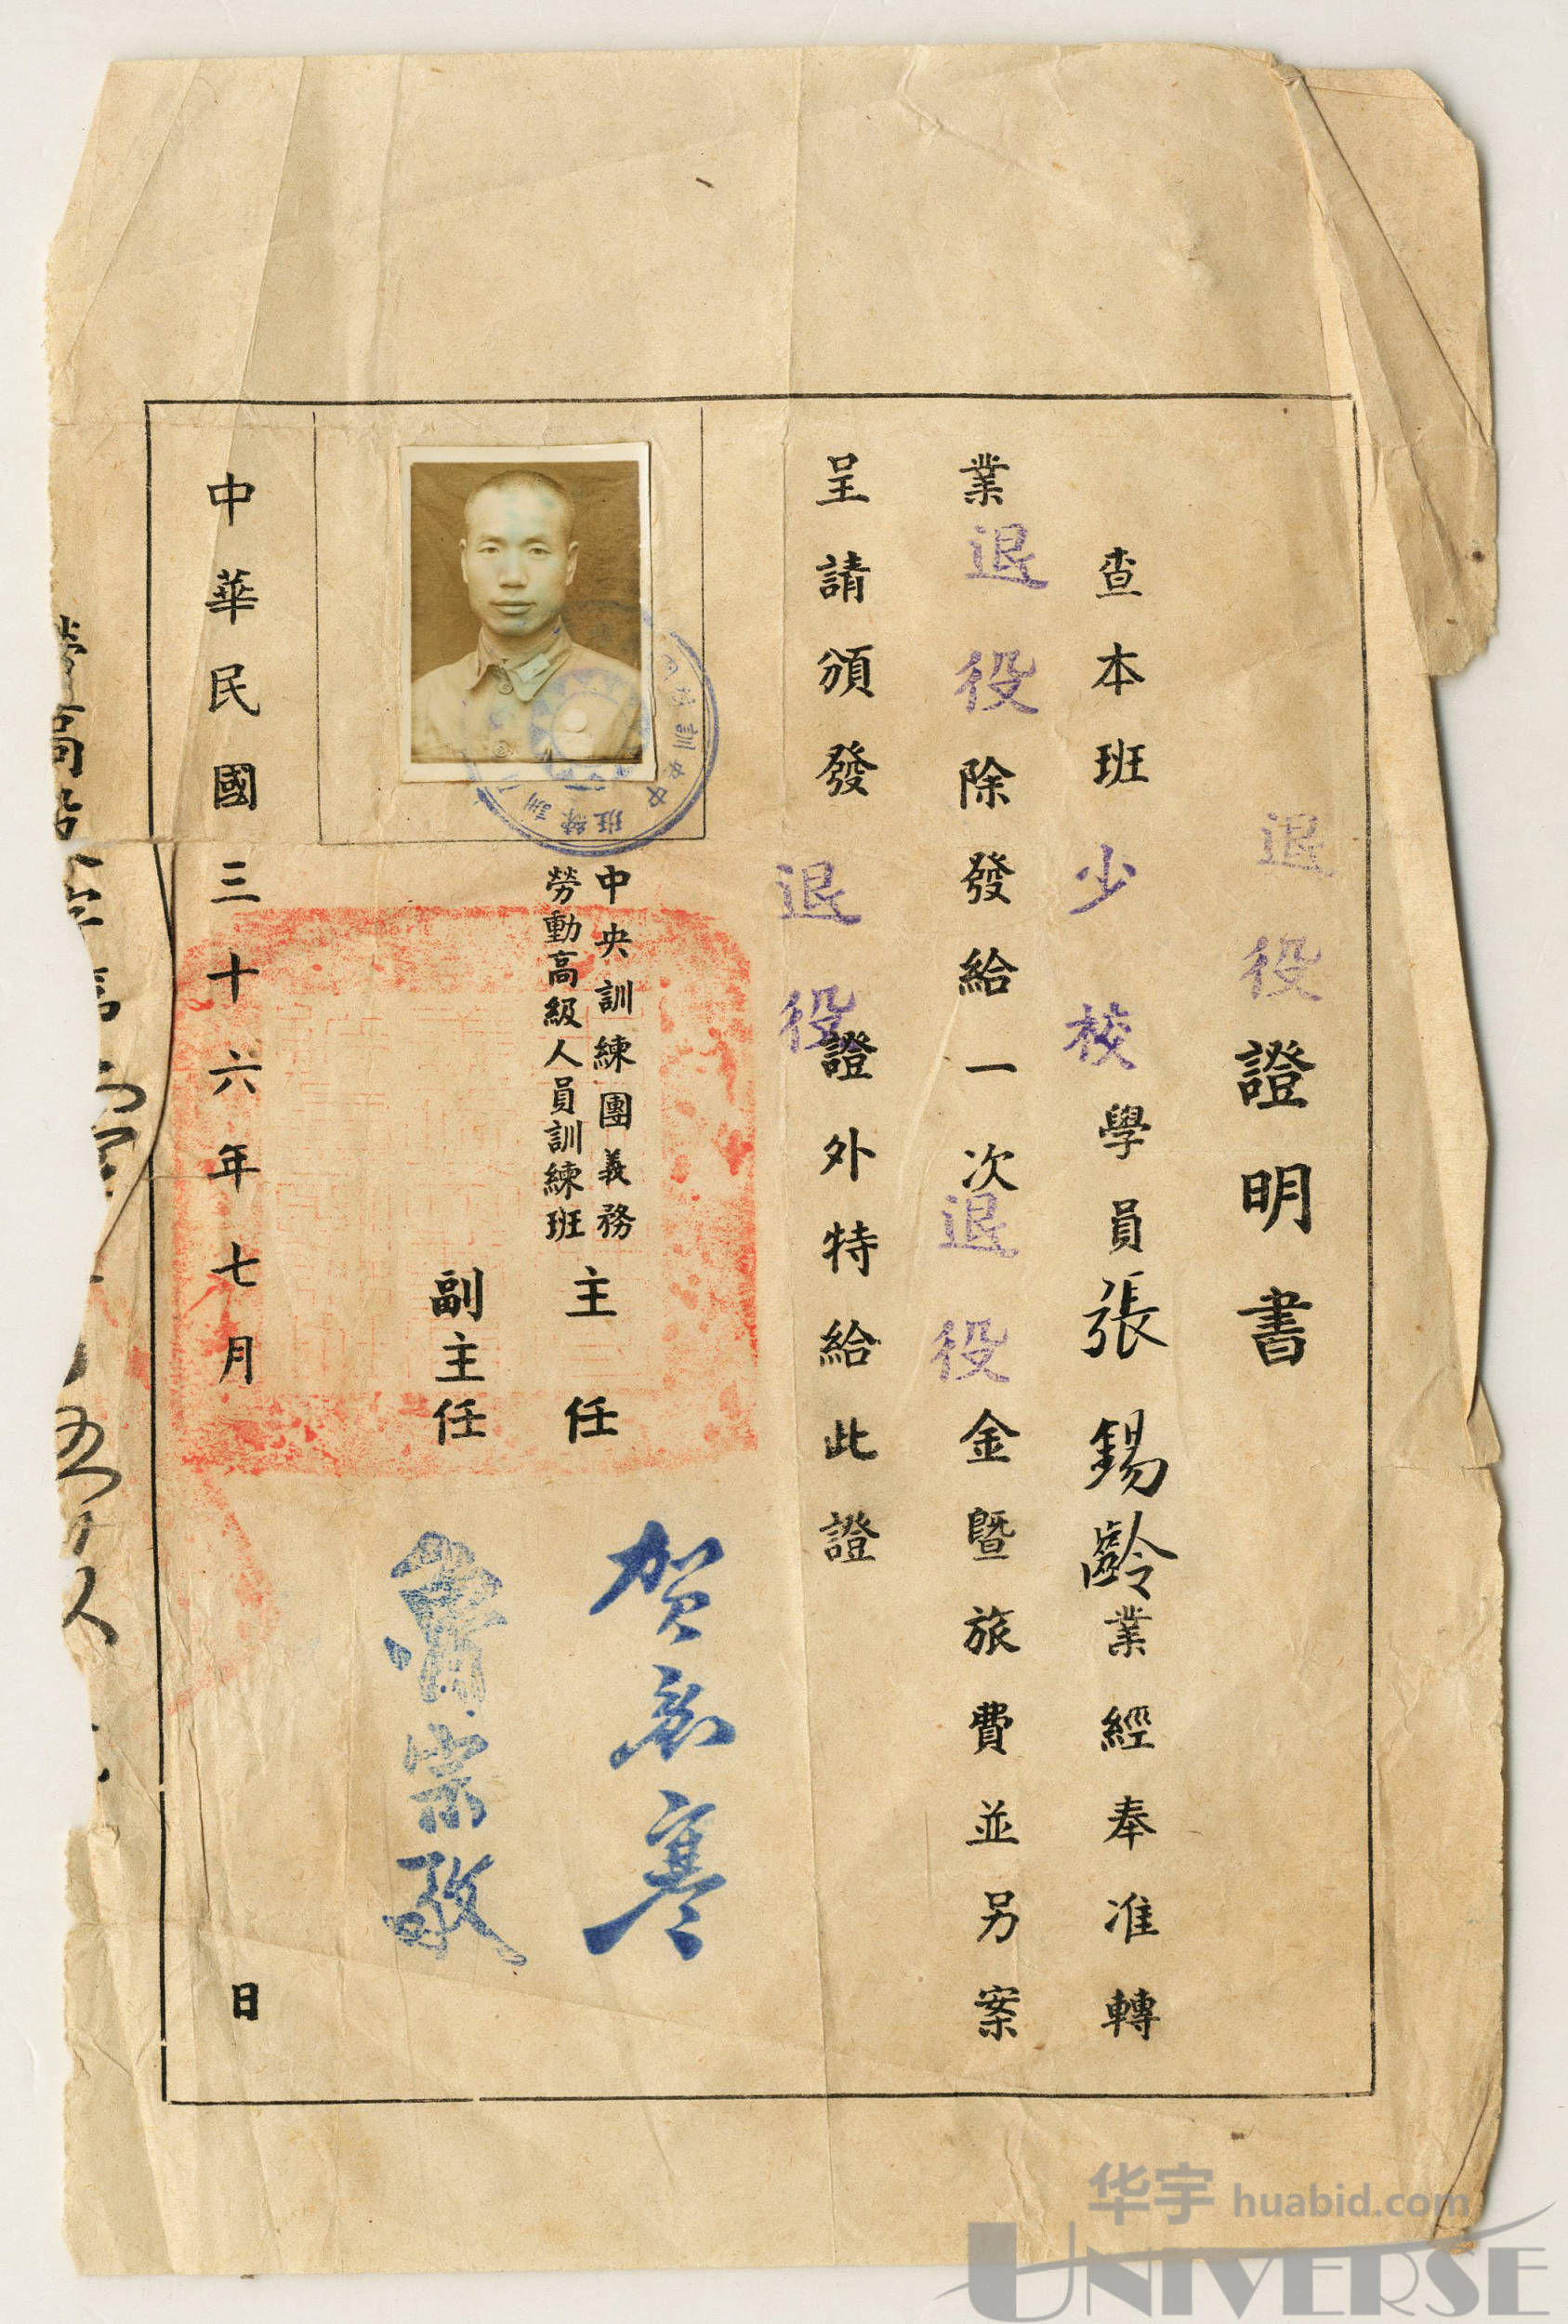 退役證明書
查本班少校學員張錫齡業經奉准轉
業退役除發給一次退役金暨旅費並另案
呈請頒發退役證外特給此證
中央訓練團義務
勞動高級人員訓練班
主任
賀衷寒
副主任
宗敬
中華民國三十六年七月 日
华宇 huabid.com
UNIVERSE